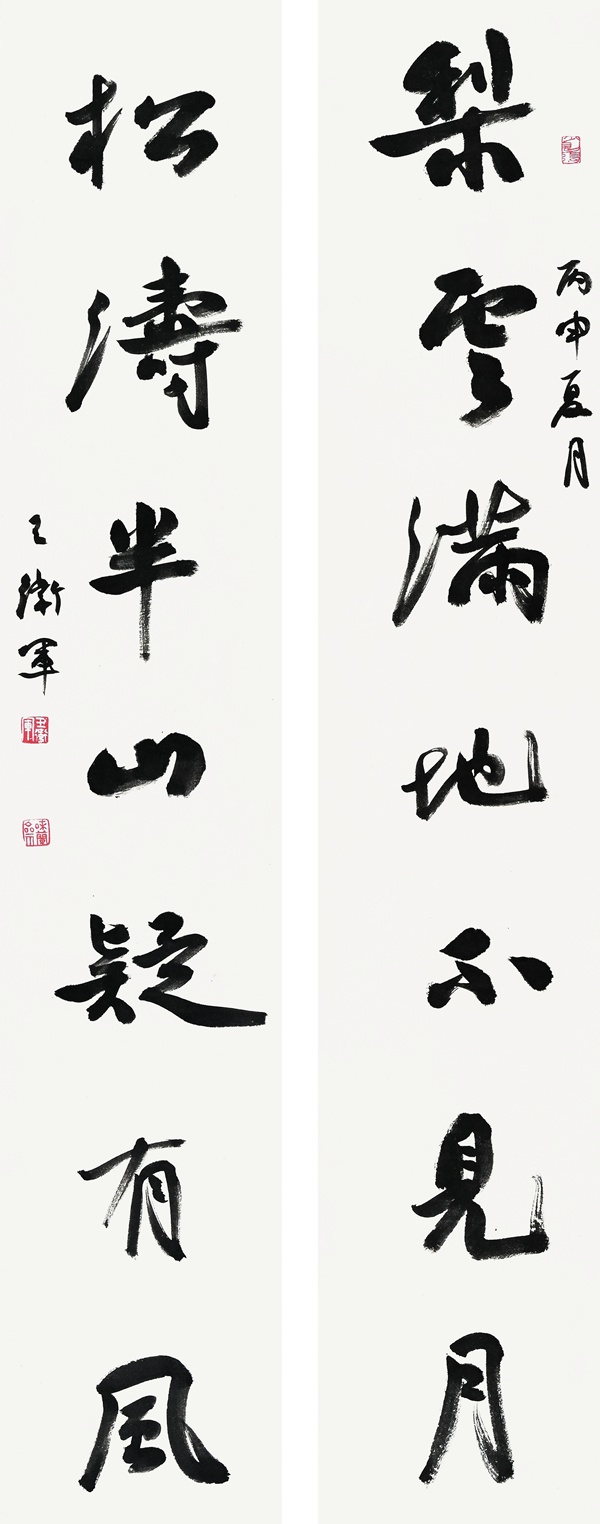 丙申夏月
梨雲滿地不見月
松濤半山疑有風
王衛軍
王衛軍